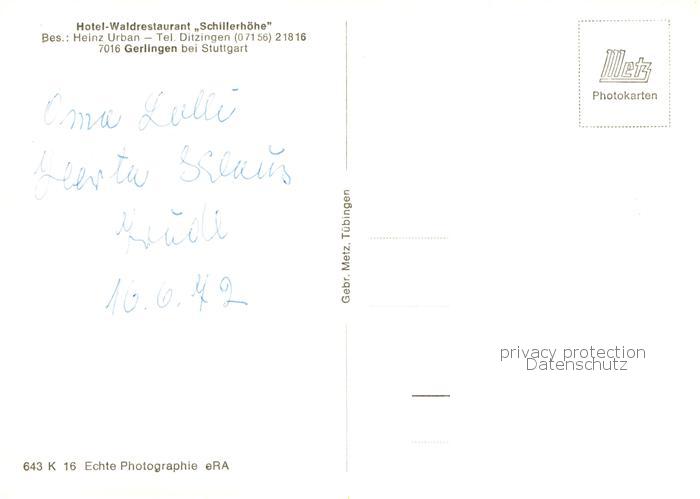 Hotel-Waldrestaurant „Schillerhöhe"
Bes.: Heinz Urban – Tel. Ditzingen (07156) 21816
7016 Gerlingen bei Stuttgart
Metz
Photokarten
Oma Lalli
Herta Klaus
Trudl
16.6.72
Gebr. Metz, Tübingen
privacy protection
Datenschutz
643 K 16 Echte Photographie eRA